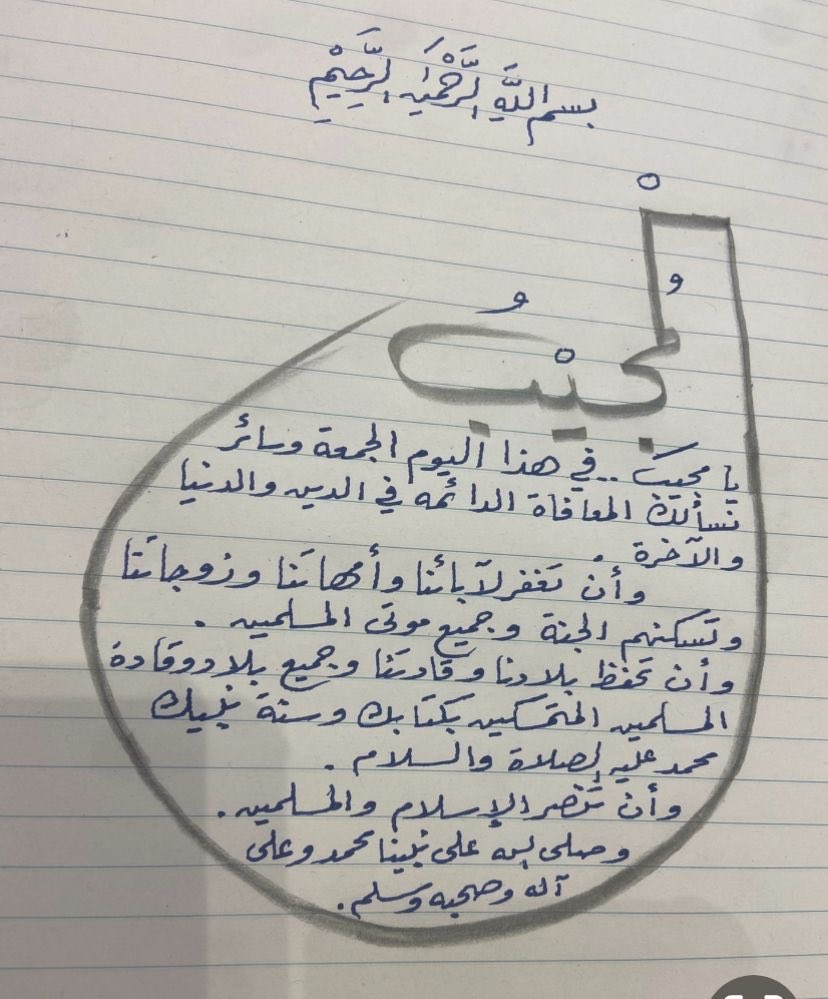 بسم اللَّهِ الرَّحْمَنِ الرَّحِيْمِ
المُجِيْبُ
يا مجيبُ .. في هذا اليوم الجمعة وسائر
نسألك المعافاة الدائمه في الدين والدنيا
والآخرة .
وأن تغفر لآبائنا وأمهاتنا وزوجاتنا
وتسكنهم الجنة وجميع موتى المسلمين .
وأن تحفظ بلادنا وقادتنا وجميع بلاد وقادة
المسلمين المتمسكين بكتابك وسنة نبيك
محمد عليه الصلاة والسلام .
وأن تنصر الإسلام والمسلمين .
وصلى الله على نبينا محمد وعلى
آله وصحبه وسلم .